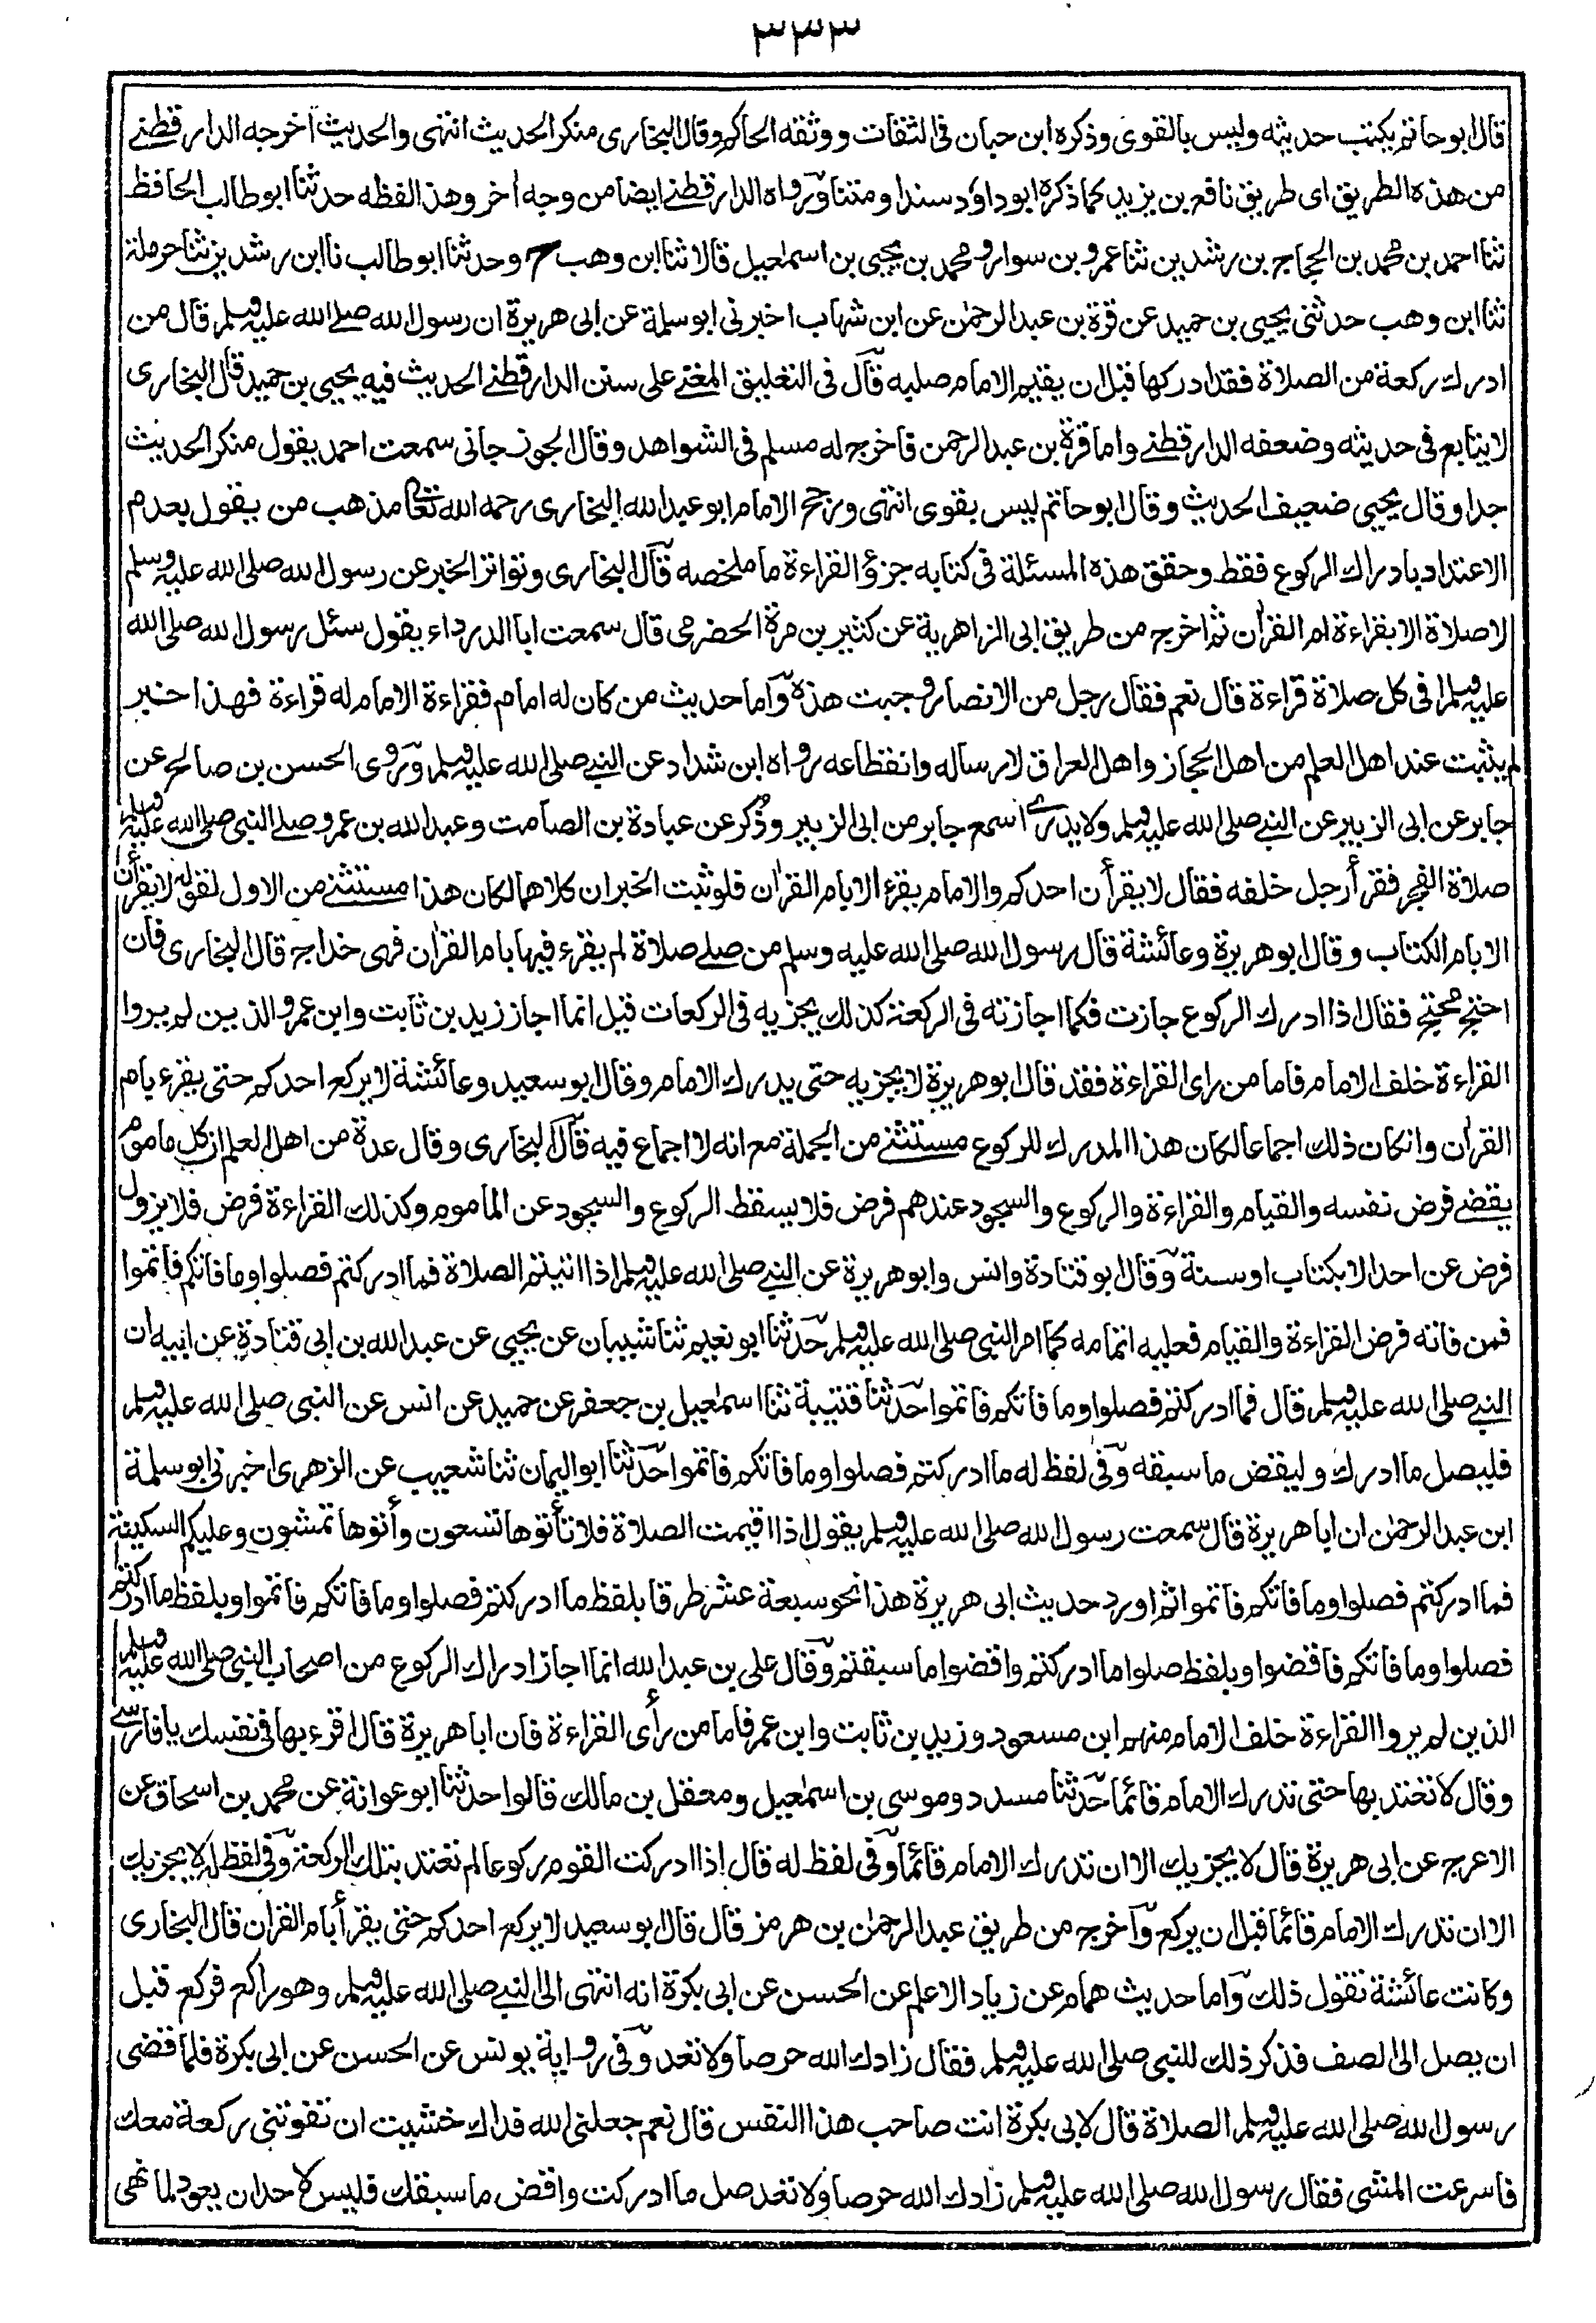 ٣٣٣
قال ابو حاتم يكتب حديثه وليس بالقوى وذكره ابن حبان فى الثقات ووثقه الحاكم وقال البخارى منكر الحديث انتهى والحديث اخرجه الدارقطنے
من هذه الطريق اى طريق نافع بن يزيد كما ذكره ابو داؤد سندا ومتنا ورواه الدارقطنے ايضا من وجه اٰخر وهذ الفظه حدثنا ابو طالب الحافظ
ثنا احمد بن محمد بن الحجاج بن رشدين ثنا عمرو بن سوار ومحمد بن يحيى بن اسمٰعيل قالا ثنا ابن وهب ح وحدثنا ابو طالب نا ابن رشدين ثنا حرملة
ثنا ابن وهب حدثنى يحيى بن حميد عن قرة بن عبد الرحمٰن عن ابن شهاب اخبرنى ابو سلمة عن ابى هريرة ان رسول الله صلے الله عليه وسلم قال من
ادرك ركعة من الصلاة فقد ادركها قبل ان يقيم الامام صلبه قال فى التعليق المغنے على سنن الدارقطنے الحديث فيه يحيى بن حميد قال البخارى
لا يتابع فى حديثه وضعفه الدارقطنے واما قرة بن عبد الرحمن فاخرج له مسلم فى الشواهد وقال الجوزجانى سمعت احمد يقول منكر الحديث
جدا وقال يحيى ضعيف الحديث وقال ابو حاتم ليس بقوى انتهى ورجح الامام ابو عبد الله البخارى رحمه الله تعالى مذهب من يقول بعدم
الاعتداد بادراك الركوع فقط وحقق هذه المسئلة فى كتابه جزؤ القراءة ما ملخصه قال البخارى وتواتر الخبر عن رسول الله صلى الله عليه وسلم
لا صلاة الا بقراءة ام القراٰن ثم اخرج من طريق ابى الزاهرية عن كثير بن مرة الحضرمى قال سمعت ابا الدرداء يقول سئل رسول الله صلى الله
عليه وسلم افى كل صلاة قراءة قال نعم فقال رجل من الانصار وجبت هذه واما حديث من كان له امام فقراءة الامام له قراءة فهذا خبر
لم يثبت عند اهل العلم من اهل الحجاز واهل العراق لارساله وانقطاعه رواه ابن شداد عن النبے صلى الله عليه وسلم وروى الحسن بن صالح عن
جابر عن ابى الزبير عن النبے صلى الله عليه وسلم ولا يدرے اسمع جابر من ابى الزبير وذُكر عن عبادة بن الصامت وعبد الله بن عمرو صلے النبى صلى الله عليه وسلم
صلاة الفجر فقرأ رجل خلفه فقال لا يقرأن احدكم والامام يقرء الا بام القراٰن فلو ثبت الخبران كلاهما لكان هذا مستثنے من الاول لقوله لا يقرأن
الا بام الكتاب وقال ابو هريرة وعائشة قال رسول الله صلى الله عليه وسلم من صلے صلاة لم يقرء فيها بام القراٰن فهى خداج قال البخارى فان
احتج محتج فقال اذا ادرك الركوع جازت فكما اجازته فى الركعة كذلك يجزيه فى الركعات قيل انما اجاز زيد بن ثابت وابن عمر والذين لم يروا
القراءة خلف الامام فاما من راى القراءة فقد قال ابو هريرة لا يجزيه حتى يدرك الامام وقال ابو سعيد وعائشة لا يركع احدكم حتى يقرء بام
القراٰن وانكان ذلك اجماعا لكان هذا المدرك للركوع مستثنے من الجملة مع انه لا اجماع فيه قال البخارى وقال عدة من اهل العلم ان كل ماموم
يقضے فرض نفسه والقيام والقراءة والركوع والسجود عندهم فرض فلا يسقط الركوع والسجود عن الماموم وكذلك القراءة فرض فلا يزول
فرض عن احد الا بكتاب او سنة وقال ابو قتادة وانس وابو هريرة عن النبے صلى الله عليه وسلم اذا اتيتم الصلاة فما ادركتم فصلوا وما فاتكم فاتموا
فمن فاته فرض القراءة والقيام فعليه اتمامه كما امر النبى صلى الله عليه وسلم حدثنا ابو نعيم ثنا شيبان عن يحيى عن عبد الله بن ابى قتادة عن ابيه ان
النبے صلى الله عليه وسلم قال فما ادركتم فصلوا وما فاتكم فاتموا حدثنا قتيبة ثنا اسمٰعيل بن جعفر عن حميد عن انس عن النبى صلى الله عليه وسلم
فليصل ما ادرك وليقض ما سبقه وفى لفظ له ما ادركتم فصلوا وما فاتكم فاتموا حدثنا ابو اليمان ثنا شعيب عن الزهرى اخبرنى ابو سلمة
ابن عبد الرحمٰن ان ابا هريرة قال سمعت رسول الله صلى الله عليه وسلم يقول اذا اقيمت الصلاة فلا تأتوها تسعون وأتوها تمشون وعليكم السكينة
فما ادركتم فصلوا وما فاتكم فاتموا ثم اورد حديث ابى هريرة هذا نحو سبعة عشر طرقا بلفظ ما ادركتم فصلوا وما فاتكم فاتموا وبلفظ ما ادركتم
فصلوا وما فاتكم فاقضوا وبلفظ صلوا ما ادركتم واقضوا ما سبقتم وقال على بن عبد الله انما اجاز ادراك الركوع من اصحاب النبى صلى الله عليه وسلم
الذين لم يروا القراءة خلف الامام منهم ابن مسعود وزيد بن ثابت وابن عمر فاما من رأى القراءة فان ابا هريرة قال اقرء بها فى نفسك يا فارسے
وقال لا تعتد بها حتى تدرك الامام قائما حدثنا مسدد وموسى بن اسمٰعيل ومعقل بن مالك قالوا حدثنا ابو عوانة عن محمد بن اسحاق عن
الاعرج عن ابى هريرة قال لا يجزيك الا ان تدرك الامام قائما وفى لفظ له قال إذا ادركت القوم ركوعا لم تعتد بتلك الركعة وفى لفظ له لا يجزيك
الا ان تدرك الامام قائما قبل ان يركع واخرج من طريق عبد الرحمٰن بن هرمز قال قال ابو سعيد لا يركع احدكم حتى يقرأ بام القراٰن قال البخارى
وكانت عائشة تقول ذلك واما حديث همام عن زياد الاعلم عن الحسن عن ابى بكرة انه انتهى الى النبے صلى الله عليه وسلم وهو راكع فركع قبل
ان يصل الى الصف فذكر ذلك للنبى صلى الله عليه وسلم فقال زادك الله حرصا ولا تعد وفى رواية يونس عن الحسن عن ابى بكرة فلما قضى
رسول الله صلى الله عليه وسلم الصلاة قال لابى بكرة انت صاحب هذا النفس قال نعم جعلنى الله فداك خشيت ان تفوتنى ركعة معك
فاسرعت المشى فقال رسول الله صلى الله عليه وسلم زادك الله حرصا ولا تعد صل ما ادركت واقض ما سبقك فليس لاحد ان يعود لما نهى